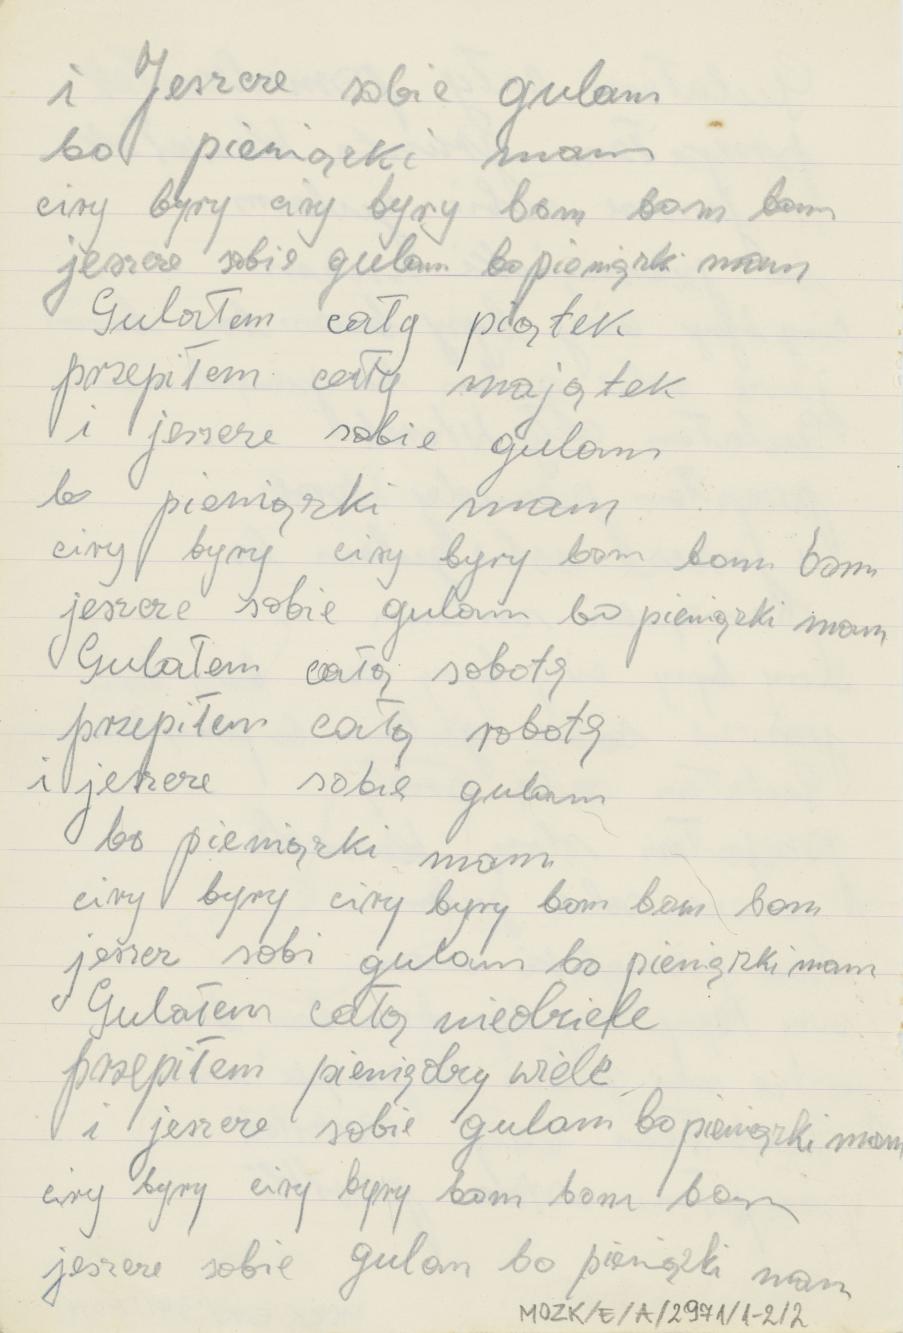 i Jeszcze sobie gulam
bo pieniązki mam
cizy byzy cizy byzy bam bam bam
jeszcze sobie gulam bo pieniązki mam
Gulałem cały piątek
przepiłem cały majątek
i jeszcze sobie gulam
bo pieniązki mam
cizy byzy cizy byzy bam bam bam
jeszcze sobie gulam bo pieniązki mam
Gulałem całą sobotą
przepiłem całą robotą
i jeszcze sobie gulam
bo pieniązki mam
cizy byzy cizy byzy bam bam bam
jeszcz sobi gulam bo pieniązki mam
Gulałem całą niedziele
przepiłem pieniędzy wiele
i jeszcze sobie gulam bo pieniązki mam
cizy byzy cizy byzy bam bam bam
jeszcze sobie gulam bo pieniązki mam
MOZK/E/A/2971/1-2/2